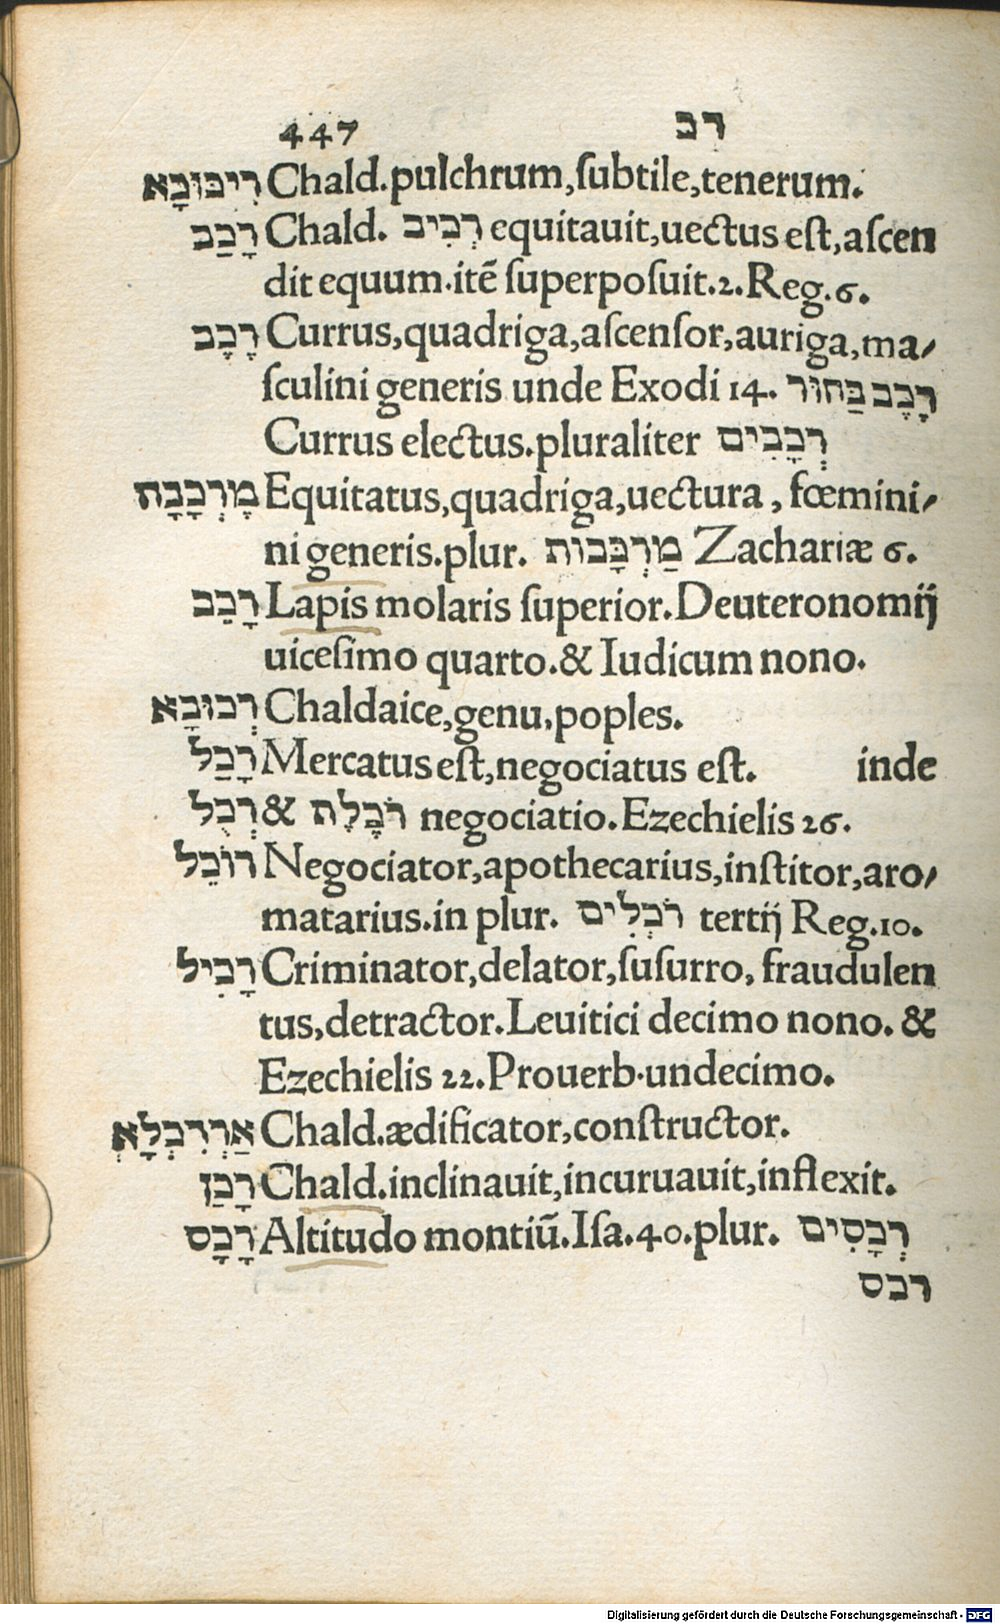 447 רכ
רִיכּוּבָא Chald.pulchrum,ſubtile,tenerum.
רָכַב Chald. רְכִיב equitauit,uectus eſt,aſcen
dit equum.itē ſuperpoſuit.2.Reg.6.
רֶכֶב Currus,quadriga,aſcenſor,auriga,ma/
ſculini generis unde Exodi 14. רֶכֶב בַּחוּר
Currus electus.pluraliter רְכָבִים
מֶרְכָבָה Equitatus,quadriga,uectura, fœmini/
ni generis.plur. מַרְכָּבוֹת Zachariæ 6.
רָכֵב Lapis molaris ſuperior.Deuteronomij
uiceſimo quarto.& Iudicum nono.
רְכוּבָא Chaldaice,genu,poples.
רָכַל Mercatus eſt,negociatus eſt. inde
רְכֻל & רֹכֶלֶת negociatio.Ezechielis 26.
רוֹכֵל Negociator,apothecarius,inſtitor,aro/
matarius.in plur. רֹכְלִים tertij Reg.10.
רָכִיל Criminator,delator,ſuſurro, fraudulen
tus,detractor.Leuitici decimo nono. &
Ezechielis 22.Prouerb.undecimo.
אַרְדִכְלָא Chald.ædificator,conſtructor.
רָכַן Chald.inclinauit,incuruauit,inflexit.
רָכָס Altitudo montiū.Iſa.40.plur. רְכָסִים
רכס
Digitalisierung gefördert durch die Deutsche Forschungsgemeinschaft - DFG